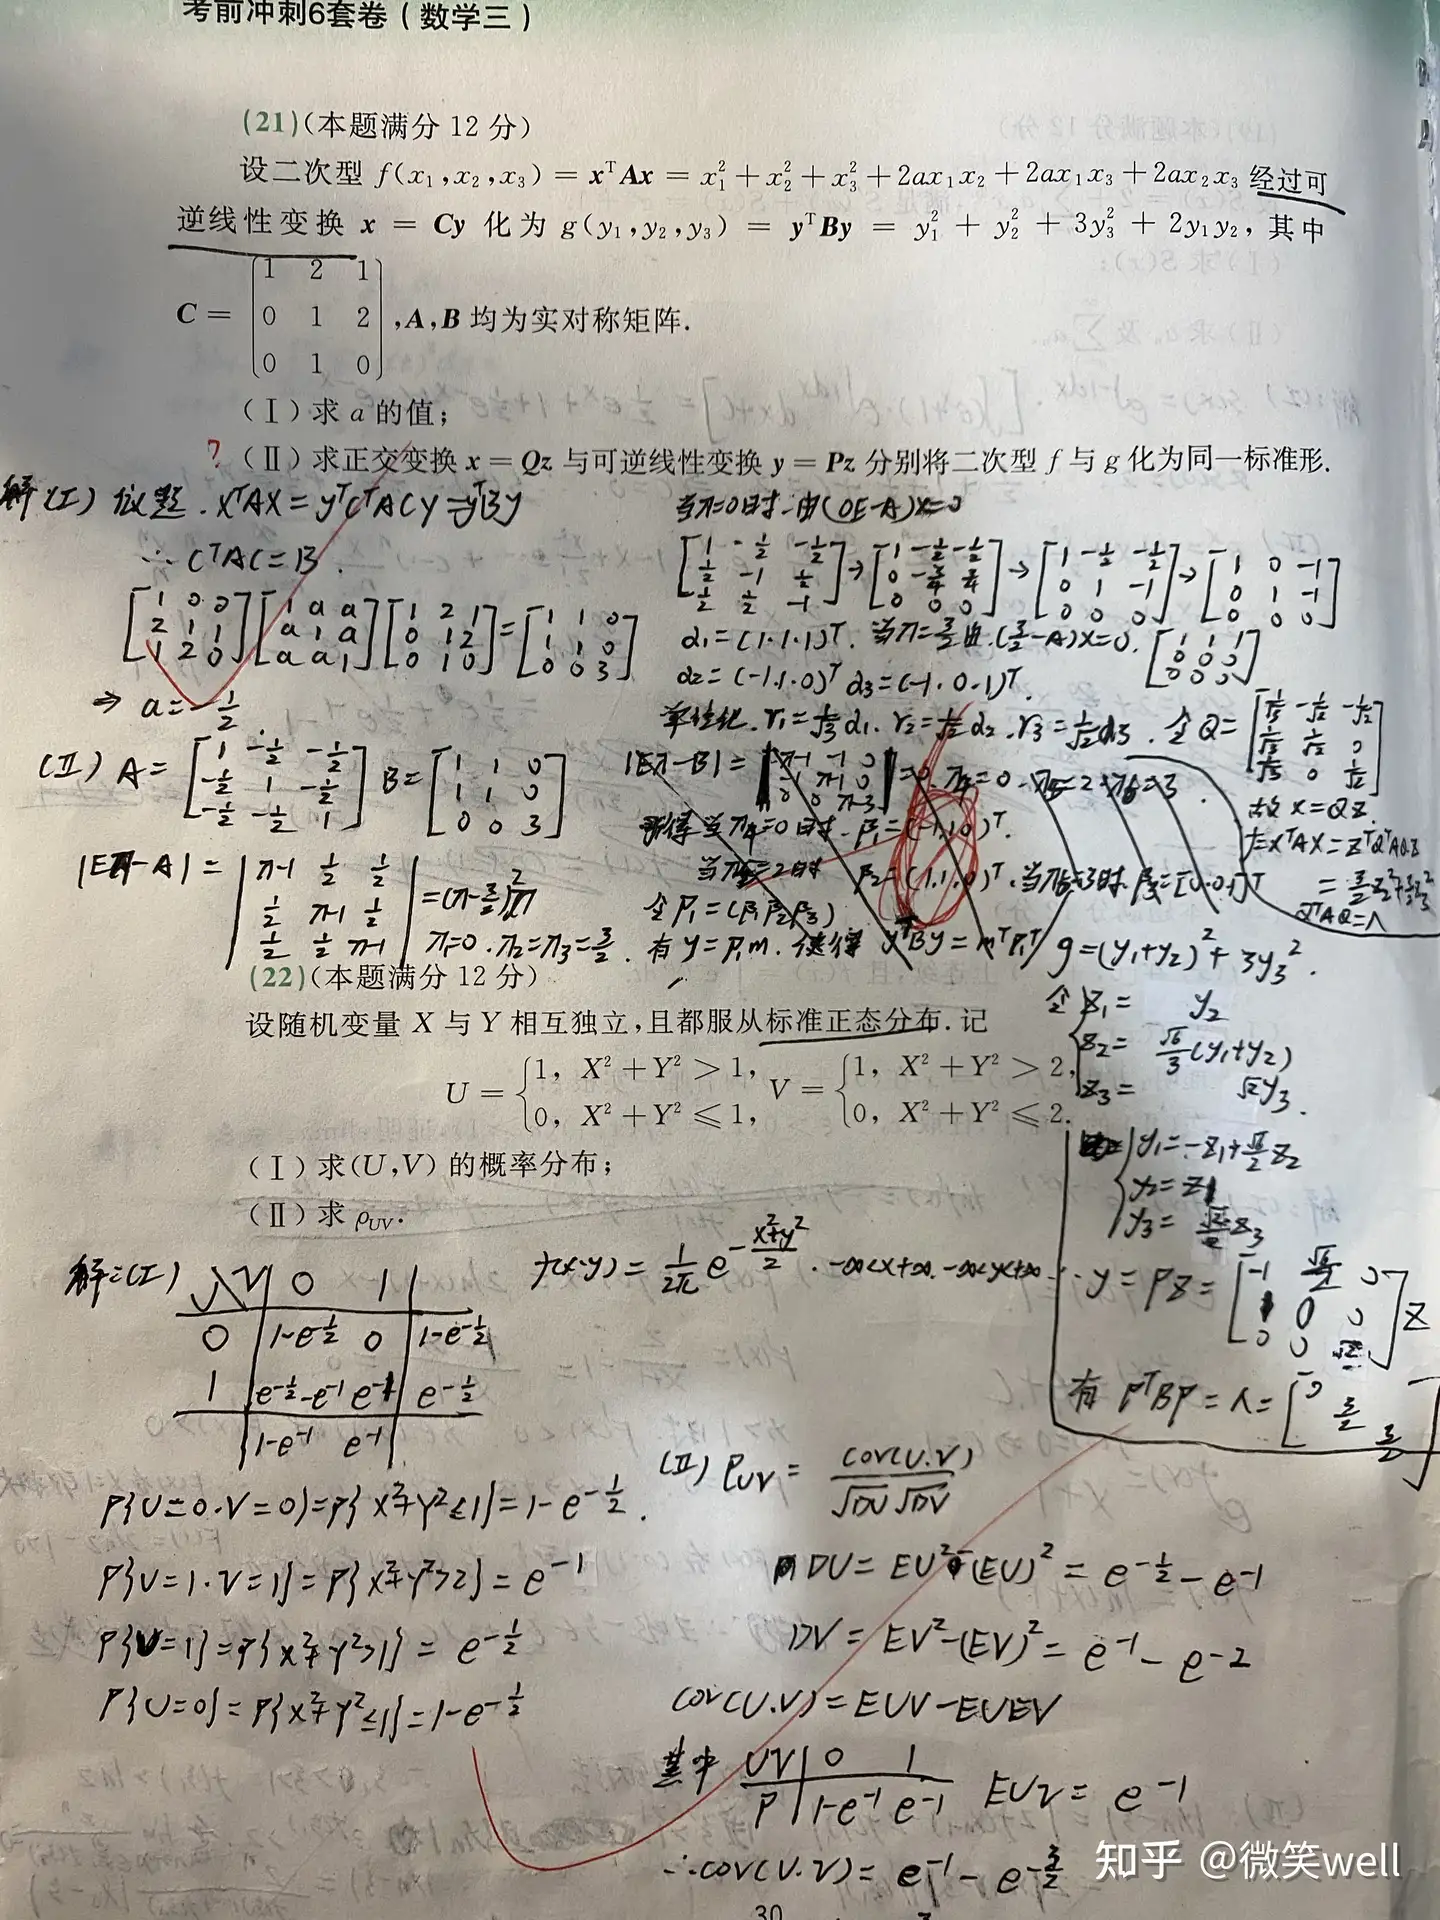 考前冲刺6套卷(数学三)
(21)(本题满分 12 分)
设二次型 f(x₁,x₂,x₃) = xᵀAx = x₁² + x₂² + x₃² + 2ax₁x₂ + 2ax₁x₃ + 2ax₂x₃ 经过可
逆线性变换 x = Cy 化为 g(y₁,y₂,y₃) = yᵀBy = y₁² + y₂² + 3y₃² + 2y₁y₂, 其中
1 2 1
C = 0 1 2 ,A,B 均为实对称矩阵.
0 1 0
(Ⅰ)求 a 的值;
? (Ⅱ)求正交变换 x = Qz 与可逆线性变换 y = Pz 分别将二次型 f 与 g 化为同一标准形.
解(I) 依题. XᵀAX = yᵀCᵀACy = yᵀBy
∴ CᵀAC = B.
[1 0 0; 2 1 1; 1 2 0] [1 a a; a 1 a; a a 1] [1 2 1; 0 1 2; 0 1 0] = [1 1 0; 1 1 0; 0 0 3]
⇒ a = -1/2.
(Ⅱ) A = [1 -1/2 -1/2; -1/2 1 -1/2; -1/2 -1/2 1] B = [1 1 0; 1 1 0; 0 0 3]
|Eλ-A| = |λ-1 1/2 1/2; 1/2 λ-1 1/2; 1/2 1/2 λ-1| = (λ-3/2)²λ
λ₁=0. λ₂=λ₃=3/2.
当λ=0时. 由(0E-A)X=0
[1 -1/2 -1/2; 1/2 -1 1/2; 1/2 1/2 -1] → [1 -1/2 -1/2; 0 -3/4 3/4; 0 0 0] → [1 -1/2 -1/2; 0 1 -1; 0 0 0] → [1 0 -1; 0 1 -1; 0 0 0]
α₁=(1.1.1)ᵀ. 当λ=3/2由(3/2-A)X=0. [1 1 1; 0 0 0; 0 0 0]
α₂=(-1.1.0)ᵀ α₃=(-1.0.1)ᵀ.
单位化. γ₁=1/√3 α₁. γ₂=1/√2 α₂. γ₃=1/√2 α₃. 令Q= [1/√3 -1/√2 -1/√2; 1/√3 1/√2 0; 1/√3 0 1/√2]
故 X=QZ.
f=XᵀAX=ZᵀQᵀAQZ
= 3/2 z₂²+3/2 z₃²
QᵀAQ=Λ
|Eλ-B| = |λ-1 -1 0; -1 λ-1 0; 0 0 λ-3| =0. λ₄=0. λ₅=2. λ₆=3.
当λ₄=0时. β₁=(-1,1,0)ᵀ.
当λ₅=2时 β₂=(1,1,0)ᵀ. 当λ₆=3时. β₃=[0.0.1]ᵀ
令P₁=(β₁ β₂ β₃)
有 y=P₁m. 使得 yᵀBy=mᵀP₁ᵀ
g=(y₁+y₂)²+3y₃².
令 z₁= y₂
z₂= √6/3 (y₁+y₂)
z₃= √2y₃.
y₁=-z₁+√6/2 z₂
y₂=z₁
y₃= √2/2 z₃
∴ y=PZ= [-1 √6/2 0; 1 0 0; 0 0 √2/2] Z
有 PᵀBP=Λ= [0 3/2 3/2]
(22)(本题满分 12 分)
设随机变量 X 与 Y 相互独立,且都服从标准正态分布. 记
U = {1, X² + Y² > 1, V = {1, X² + Y² > 2,
0, X² + Y² ⩽ 1, 0, X² + Y² ⩽ 2.
(Ⅰ)求(U,V) 的概率分布;
(Ⅱ)求 ρ_UV.
解:(I) U\V 0 1
0 1-e^{-1/2} 0 1-e^{-1/2}
1 e^{-1/2}-e^{-1} e^{-1} e^{-1/2}
1-e^{-1} e^{-1}
f(x.y) = 1/2π e^{-(x²+y²)/2}. -∞<x<+∞. -∞<y<+∞
P{U=0.V=0}=P{X²+Y²≤1}=1-e^{-1/2}.
P{U=1.V=1}=P{X²+Y²>2}=e^{-1}
P{U=1}=P{X²+Y²>1}=e^{-1/2}
P{U=0}=P{X²+Y²≤1}=1-e^{-1/2}
(Ⅱ) ρ_UV = COV(U.V)/√DU √DV
DU=EU²-(EU)²=e^{-1/2}-e^{-1}
DV=EV²-(EV)²=e^{-1}-e^{-2}
COV(U.V)=EUV-EUEV
其中 UV 0 1
P 1-e^{-1} e^{-1} EUV=e^{-1}
∴COV(U.V)=e^{-1}-e^{-3/2}
30
知乎 @微笑well